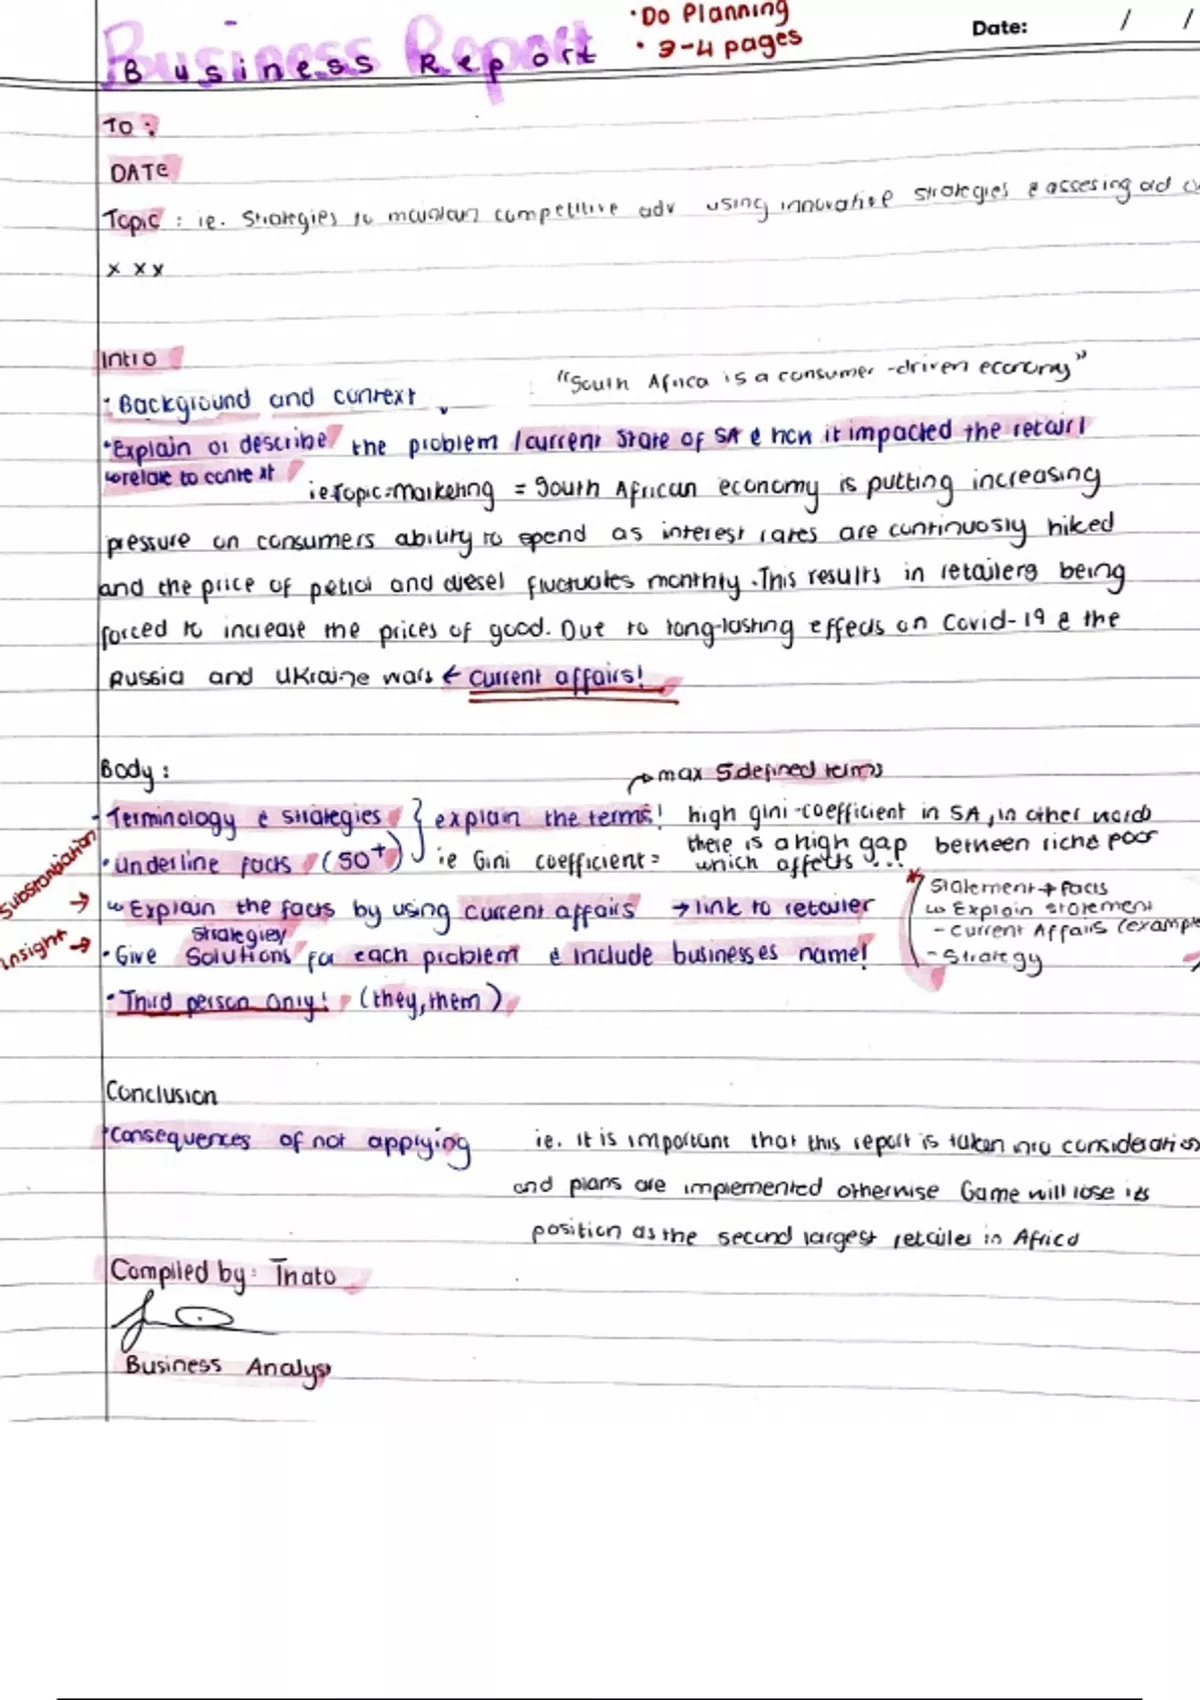 Business Report
Business Report
• Do Planning
• 3-4 pages
Date: / /
To :
DATE
Topic : ie. Strategies to maintain competitive adv using innovative strategies & assesing old
x x x
Intro
• Background and context
"South Africa is a consumer -driven economy"
• Explain or describe the problem / current state of SA & how it impacted the retail
↳ relate to context
ie Topic = Marketing = South African economy is putting increasing
pressure on consumers ability to spend as interest rates are continuosly hiked
and the price of petrol and diesel fluctuates monthly. This results in retailers being
forced to increase the prices of good. Due to long-lasting effects on Covid-19 & the
Russia and Ukraine wars ← Current affairs!
Body :
→ max 5 defined terms
• Terminology & strategies } explain the terms! high gini-coefficient in SA, in other words
there is a high gap between rich & poor
• Underline facts (50+) ie Gini coefficient = which affects ...
Substantiation →
↳ Explain the facts by using current affairs → link to retailer
* Statement + facts
↳ Explain statement
- Current Affairs (example
- Strategy
Insight →
strategies/
• Give Solutions for each problem & include businesses name!
• Third person only! (they, them)
Conclusion
• Consequences of not applying
ie. It is important that this report is taken into consideration
and plans are implemented otherwise Game will lose its
position as the second largest retailer in Africa
Compiled by: Thato
Business Analyst